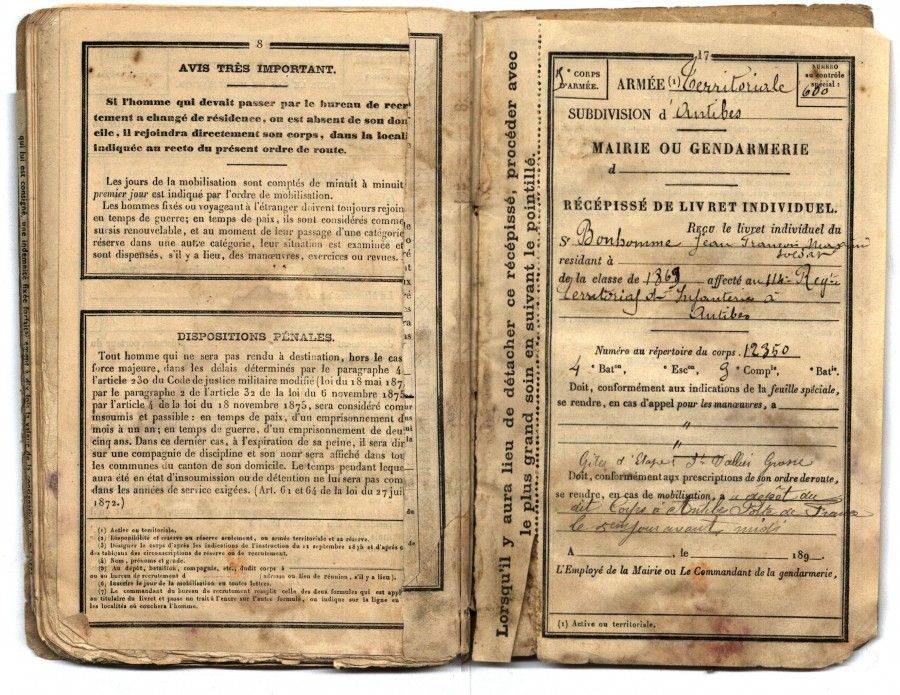 8
AVIS TRÈS IMPORTANT.
Si l'homme qui devait passer par le bureau de recr
tement a changé de résidence, ou est absent de son dom
cile, il rejoindra directement son corps, dans la local
indiquée au recto du présent ordre de route.
Les jours de la mobilisation sont comptés de minuit à minuit
premier jour est indiqué par l'ordre de mobilisation.
Les hommes fixés ou voyageant à l'étranger doivent toujours rejoin
en temps de guerre; en temps de paix, ils sont considérés comme
sursis renouvelable, et au moment de leur passage d'une catégorie
réserve dans une autre catégorie, leur situation est examinée et
sont dispensés, s'il y a lieu, des manœuvres, exercices ou revues.
DISPOSITIONS PÉNALES.
Tout homme qui ne sera pas rendu à destination, hors le cas
force majeure, dans les délais déterminés par le paragraphe 4
l'article 230 du Code de justice militaire modifié (loi du 18 mai 187
par le paragraphe 2 de l'article 32 de la loi du 6 novembre 1875
par l'article 4 de la loi du 18 novembre 1875, sera considéré comm
insoumis et passible: en temps de paix, d'un emprisonnement d
mois à un an; en temps de guerre, d'un emprisonnement de deu
cinq ans. Dans ce dernier cas, à l'expiration de sa peine, il sera dir
sur une compagnie de discipline et son nom sera affiché dans tout
les communes du canton de son domicile. Le temps pendant leque
aura été en état d'insoumission ou de détention ne lui sera pas com
dans les années de service exigées. (Art. 61 et 64 de la loi du 27 jui
1872.)
(1) Active ou territoriale.
(2) Disponibilité et réserve ou réserve seulement, ou armée territoriale et sa réserve.
(3) Désigner le corps d'après les indications de l'instruction du 11 septembre 1830 et d'après
des tableaux des circonscriptions de réserve ou de recrutement.
(4) Nom, prénoms et grade.
(5) Au dépôt, bataillon, compagnie, etc., dudit corps à
ou au bureau de recrutement d (adresse ou lieu de réunion, s'il y a lieu).
(6) Inscrire le jour de la mobilisation en toutes lettres.
(7) Le commandant du bureau de recrutement remplit celle des deux formules qui est app
au titulaire du livret et passe un trait à l'encre sur l'autre formule, ou indique sur la ligne en
les localités où couchera l'homme.
Lorsqu'il y aura lieu de détacher ce récépissé, procéder avec
le plus grand soin en suivant le pointillé.
17
15e CORPS
D'ARMÉE.
ARMÉE (1) Territoriale
NUMÉRO
au contrôle
spécial:
600
SUBDIVISION d'Antibes
MAIRIE OU GENDARMERIE
d
RÉCÉPISSÉ DE LIVRET INDIVIDUEL.
Reçu le livret individuel du
Sr Bonhomme Jean François
soldat
résidant à
de la classe de 1869 affecté au 114e Regt
Territorial d'Infanterie à
Antibes
Numéro au répertoire du corps. 12350
4 e Baton, e Escon, 3 e Compie, e Batie.
Doit, conformément aux indications de la feuille spéciale,
se rendre, en cas d'appel pour les manœuvres, a
"
"
Gites d'Etapes St Vallier Grasse
Doit, conformément aux prescriptions de son ordre de route,
se rendre, en cas de mobilisation, a u dépôt du
dit Corps à Antibes
le jour avant midi
A , le 189
L'Employé de la Mairie ou Le Commandant de la gendarmerie,
(1) Active ou territoriale.